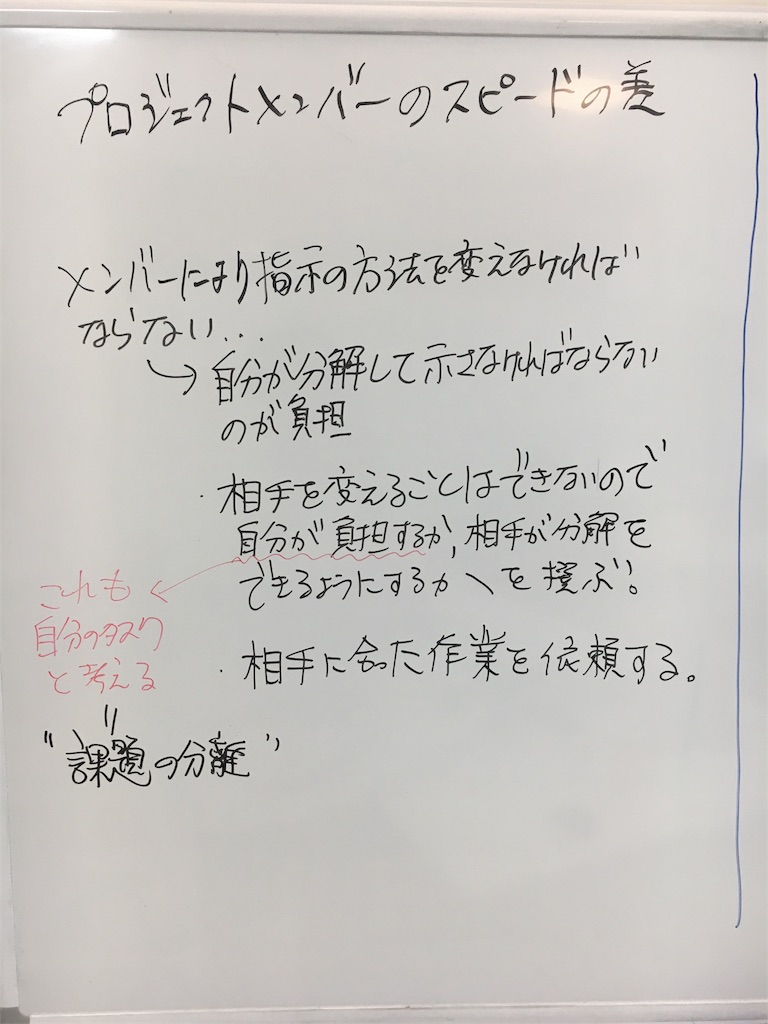 プロジェクトメンバーのスピードの差
メンバーにより指示の方法を変えなければ
ならない...
→自分が分解して示さなければならない
のが負担
・相手を変えることはできないので
自分が負担するか,相手が分解を
できるようにするか、を選ぶ。
・相手に合った作業を依頼する。
これも
自分のタスク
と考える
〃
"課題の分離"